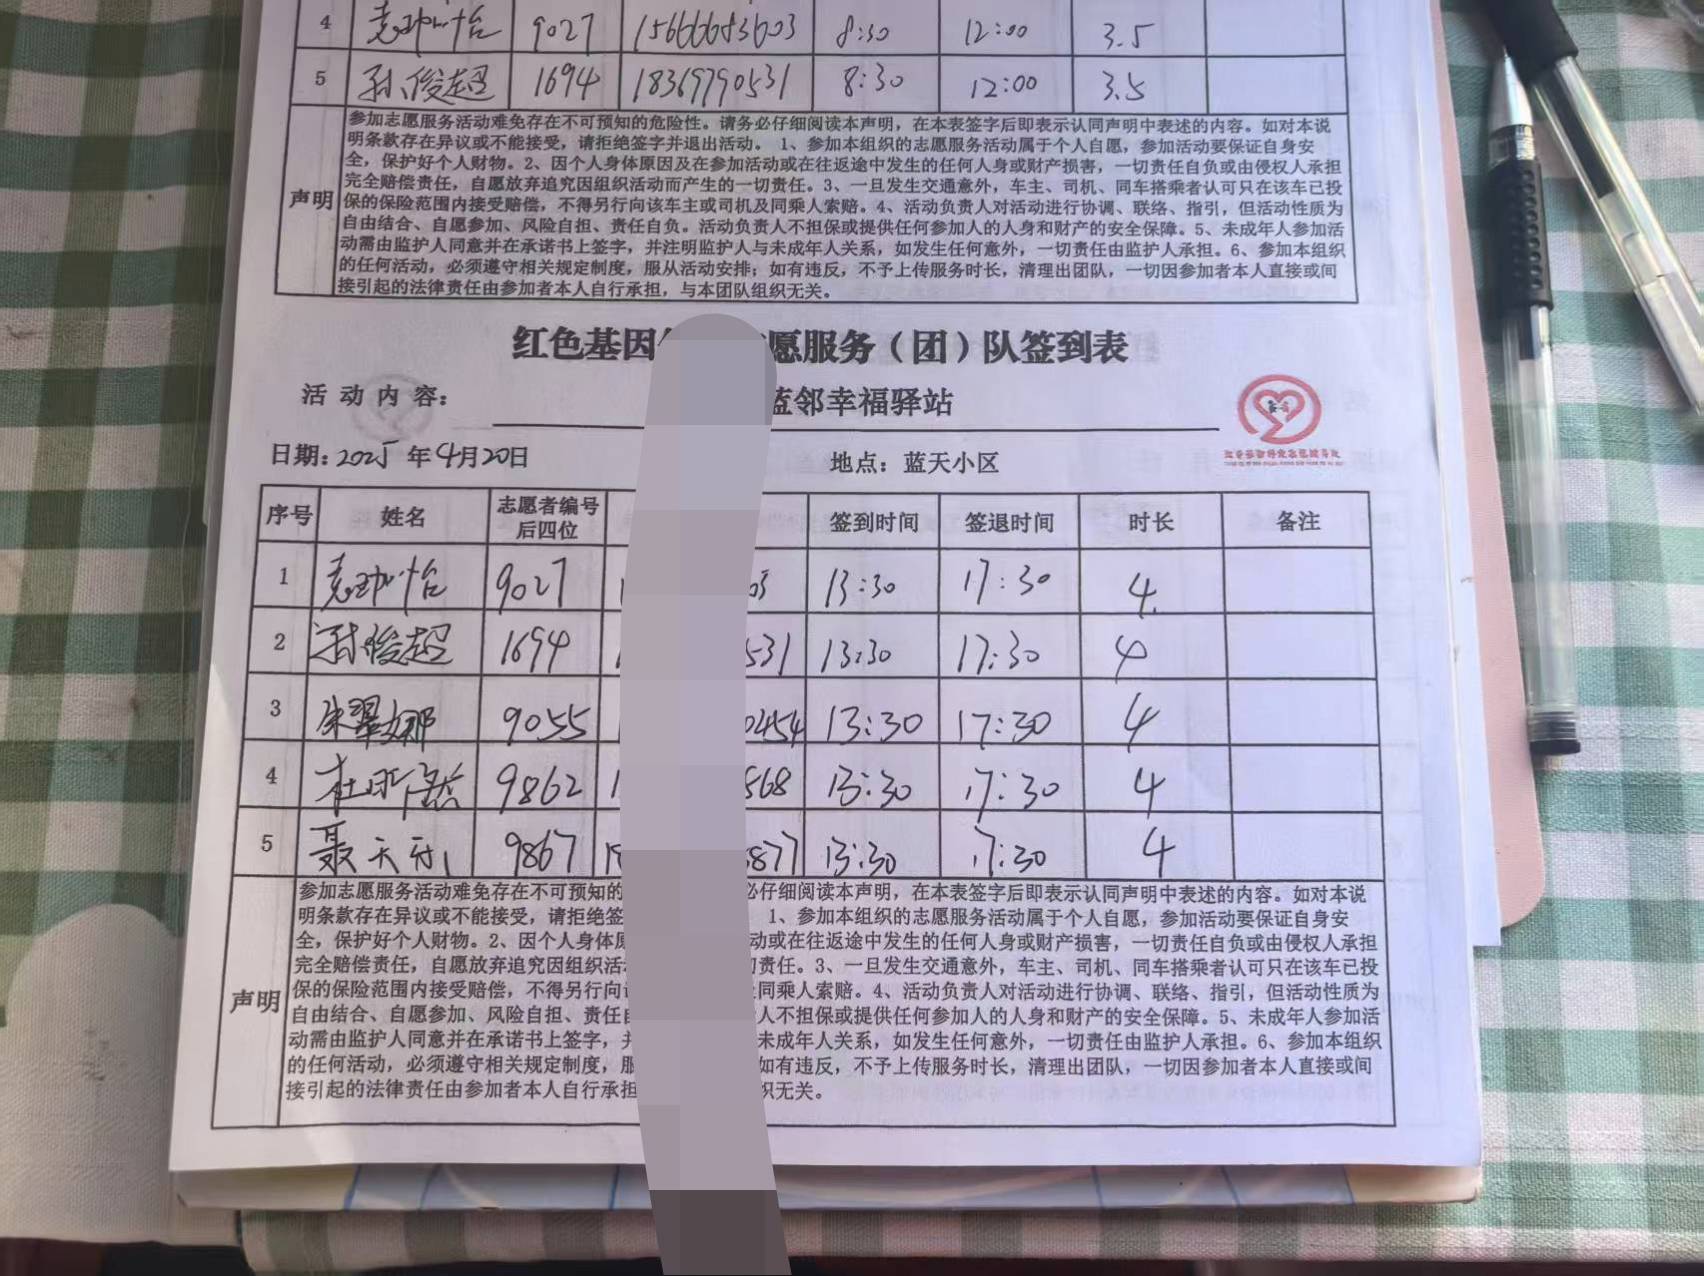 4 9027 15666683603 8:30 12:00 3.5
5 孙俊超 1694 18369790531 8:30 12:00 3.5
声明
参加志愿服务活动难免存在不可预知的危险性。请务必仔细阅读本声明，在本表签字后即表示认同声明中表述的内容。如对本说
明条款存在异议或不能接受，请拒绝签字并退出活动。 1、参加本组织的志愿服务活动属于个人自愿，参加活动要保证自身安
全，保护好个人财物。2、因个人身体原因及在参加活动或在往返途中发生的任何人身或财产损害，一切责任自负或由侵权人承担
完全赔偿责任，自愿放弃追究因组织活动而产生的一切责任。3、一旦发生交通意外，车主、司机、同车搭乘者认可只在该车已投
保的保险范围内接受赔偿，不得另行向该车主或司机及同乘人索赔。4、活动负责人对活动进行协调、联络、指引，但活动性质为
自由结合、自愿参加、风险自担、责任自负。活动负责人不担保或提供任何参加人的人身和财产的安全保障。5、未成年人参加活
动需由监护人同意并在承诺书上签字，并注明监护人与未成年人关系，如发生任何意外，一切责任由监护人承担。6、参加本组织
的任何活动，必须遵守相关规定制度，服从活动安排；如有违反，不予上传服务时长，清理出团队，一切因参加者本人直接或间
接引起的法律责任由参加者本人自行承担，与本团队组织无关。
红色基因 愿服务（团）队签到表
活动内容： 蓝邻幸福驿站
日期：2025年4月20日 地点：蓝天小区
序号 姓名 志愿者编号后四位 签到时间 签退时间 时长 备注
1 9027 03 13:30 17:30 4
2 孙俊超 1694 531 13:30 17:30 4
3 朱翠娜 9055 0454 13:30 17:30 4
4 9862 1 568 13:30 17:30 4
5 聂天 9867 18 877 13:30 17:30 4
声明
参加志愿服务活动难免存在不可预知的 必仔细阅读本声明，在本表签字后即表示认同声明中表述的内容。如对本说
明条款存在异议或不能接受，请拒绝签 1、参加本组织的志愿服务活动属于个人自愿，参加活动要保证自身安
全，保护好个人财物。2、因个人身体 动或在往返途中发生的任何人身或财产损害，一切责任自负或由侵权人承担
完全赔偿责任，自愿放弃追究因组织活 责任。3、一旦发生交通意外，车主、司机、同车搭乘者认可只在该车已投
保的保险范围内接受赔偿，不得另行向 同乘人索赔。4、活动负责人对活动进行协调、联络、指引，但活动性质为
自由结合、自愿参加、风险自担、责任 人不担保或提供任何参加人的人身和财产的安全保障。5、未成年人参加活
动需由监护人同意并在承诺书上签字， 未成年人关系，如发生任何意外，一切责任由监护人承担。6、参加本组织
的任何活动，必须遵守相关规定制度，服 如有违反，不予上传服务时长，清理出团队，一切因参加者本人直接或间
接引起的法律责任由参加者本人自行承担 织无关。